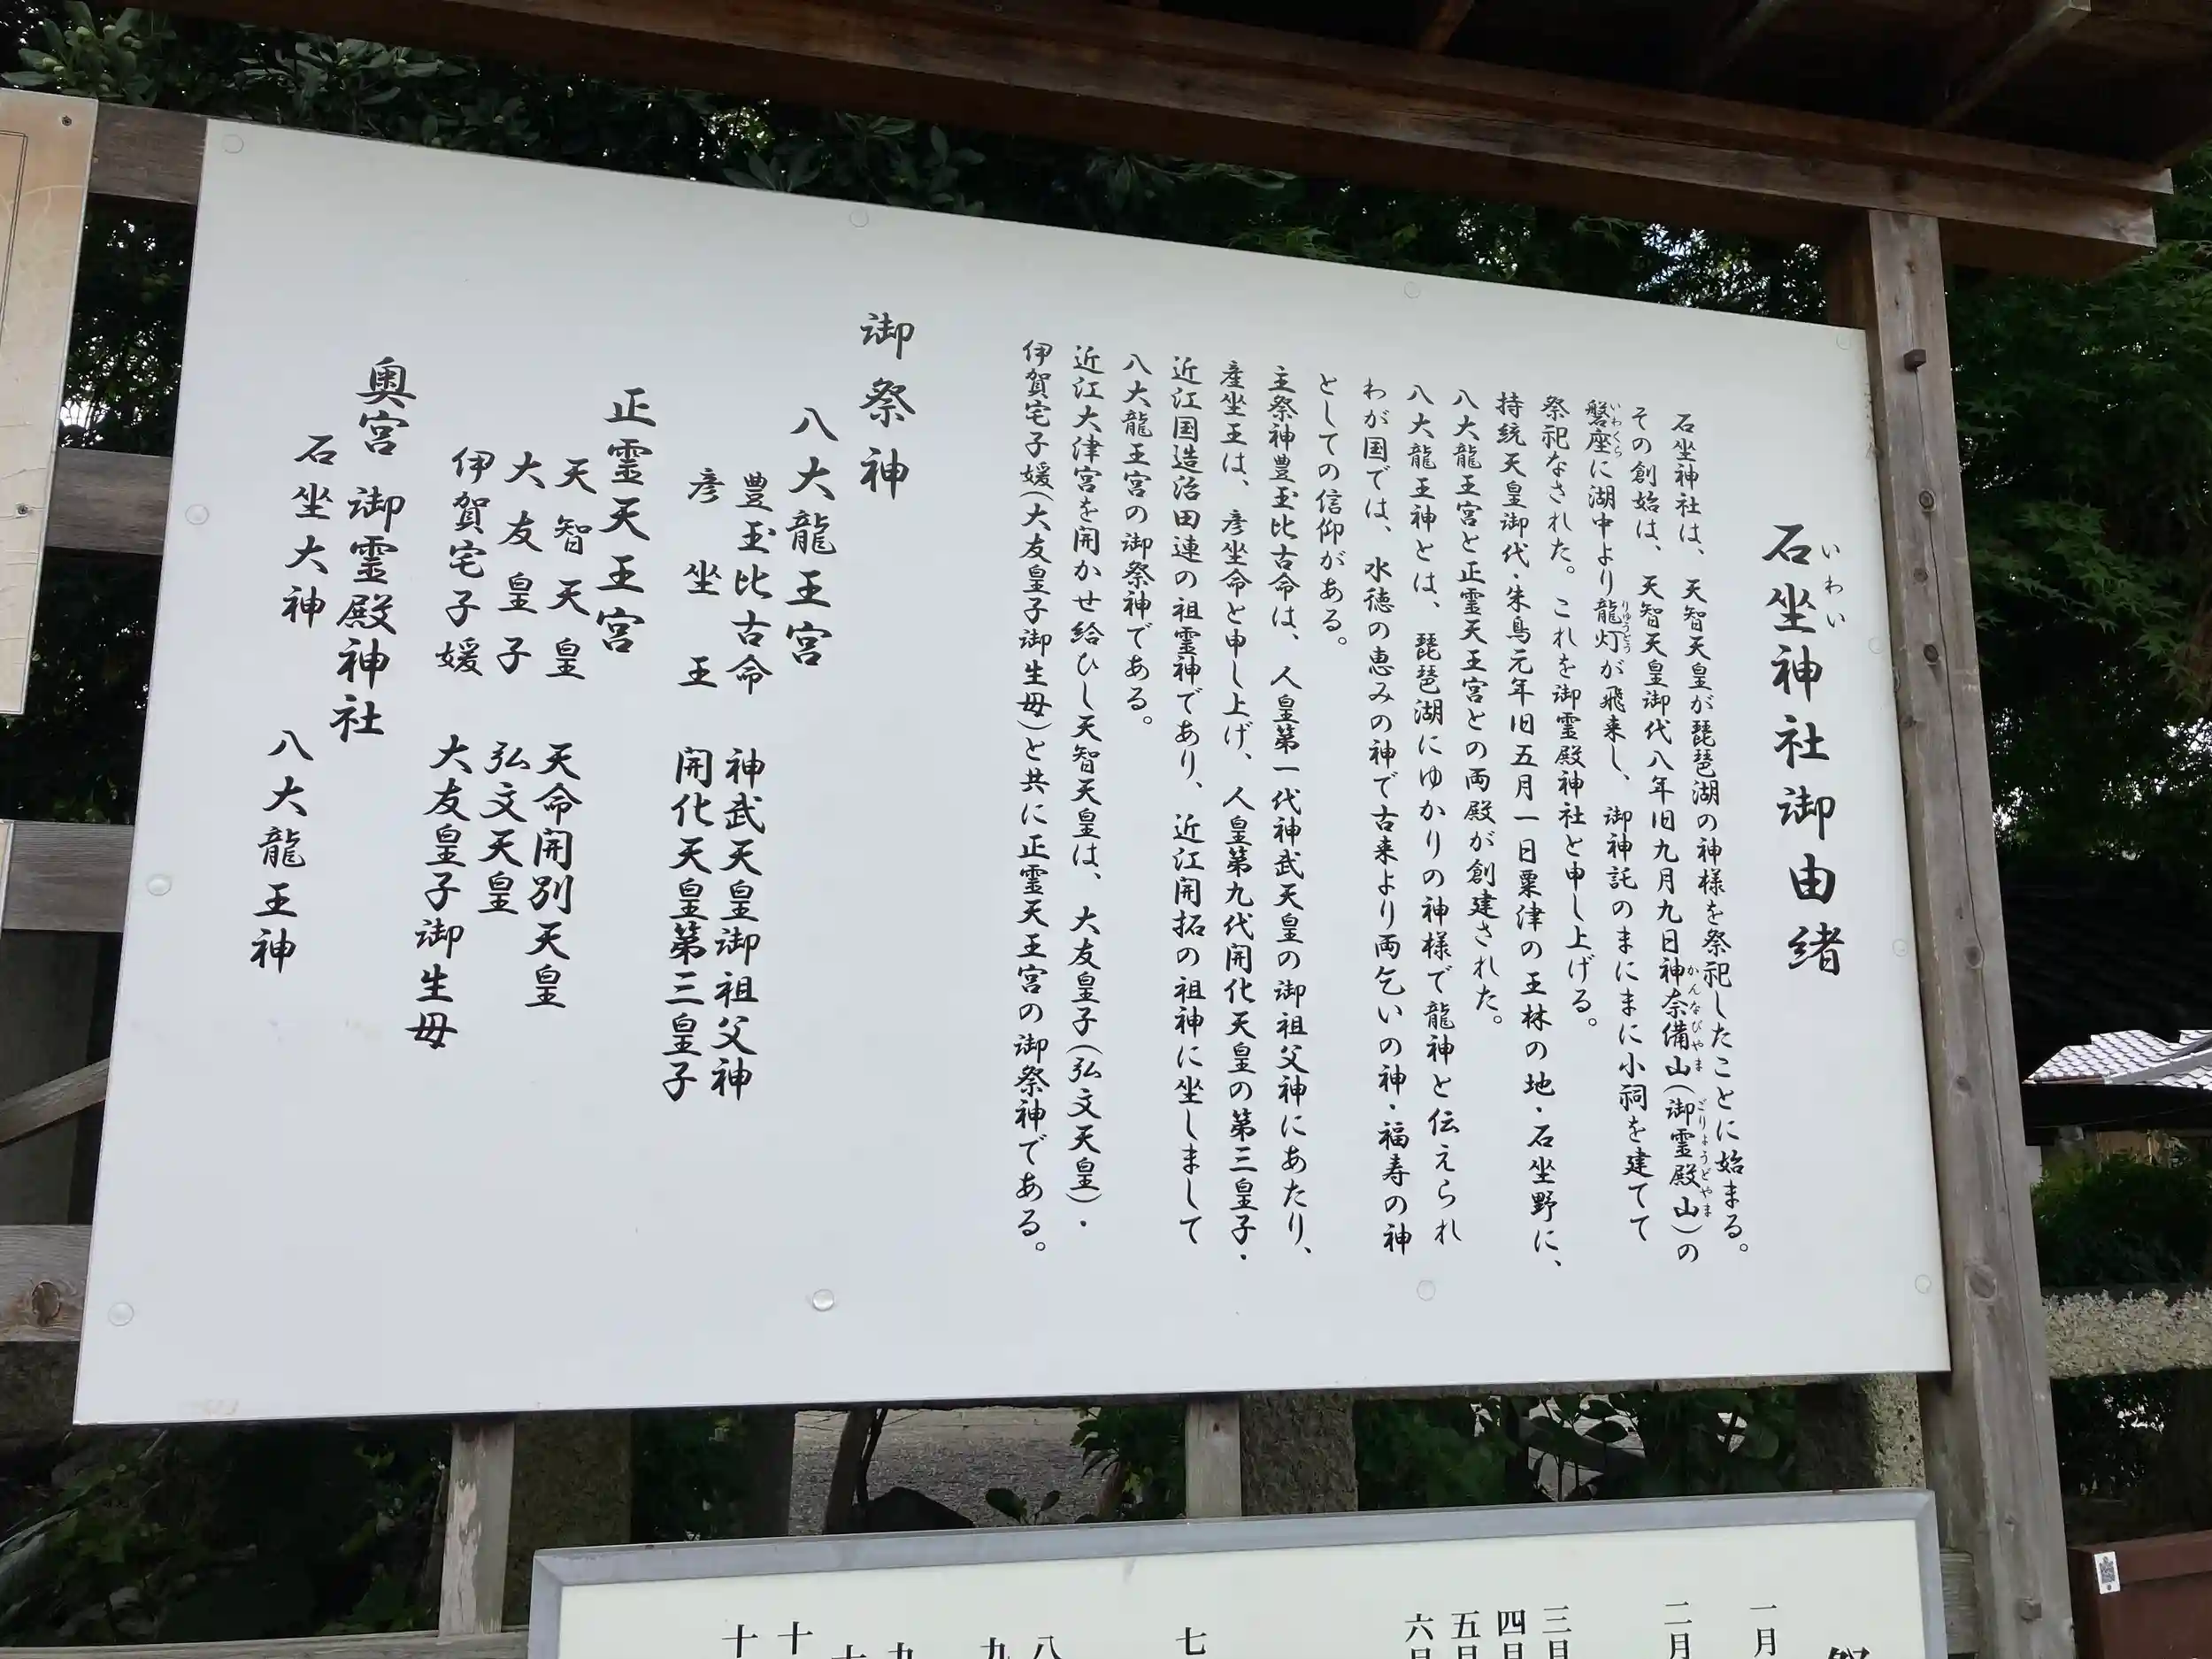 石坐神社御由緒
いわい
石坐神社は、天智天皇が琵琶湖の神様を祭祀したことに始まる。
その創始は、天智天皇御代八年旧九月九日神奈備山(御霊殿山)の
かんなびやま
ごりょうどやま
磐座に湖中より龍灯が飛来し、御神託のまにまに小祠を建てて
いわくら
りゅうとう
祭祀なされた。これを御霊殿神社と申し上げる。
持統天皇御代・朱鳥元年旧五月一日粟津の王林の地・石坐野に、
八大龍王宮と正霊天王宮との両殿が創建された。
八大龍王神とは、琵琶湖にゆかりの神様で龍神と伝えられ
わが国では、水徳の恵みの神で古来より雨乞いの神・福寿の神
としての信仰がある。
主祭神豊玉比古命は、人皇第一代神武天皇の御祖父神にあたり、
彦坐王は、彦坐命と申し上げ、人皇第九代開化天皇の第三皇子・
近江国造治田連の祖霊神であり、近江開拓の祖神に坐しまして
八大龍王宮の御祭神である。
近江大津宮を開かせ給ひし天智天皇は、大友皇子(弘文天皇)・
伊賀宅子媛(大友皇子御生母)と共に正霊天王宮の御祭神である。
御祭神
八大龍王宮
豊玉比古命 神武天皇御祖父神
彦坐王 開化天皇第三皇子
正霊天王宮
天智天皇 天命開別天皇
大友皇子 弘文天皇
伊賀宅子媛 大友皇子御生母
奥宮 御霊殿神社
石坐大神 八大龍王神
一月
二月
三月
四月
五月
六月
七
八
九
九
十
十
十